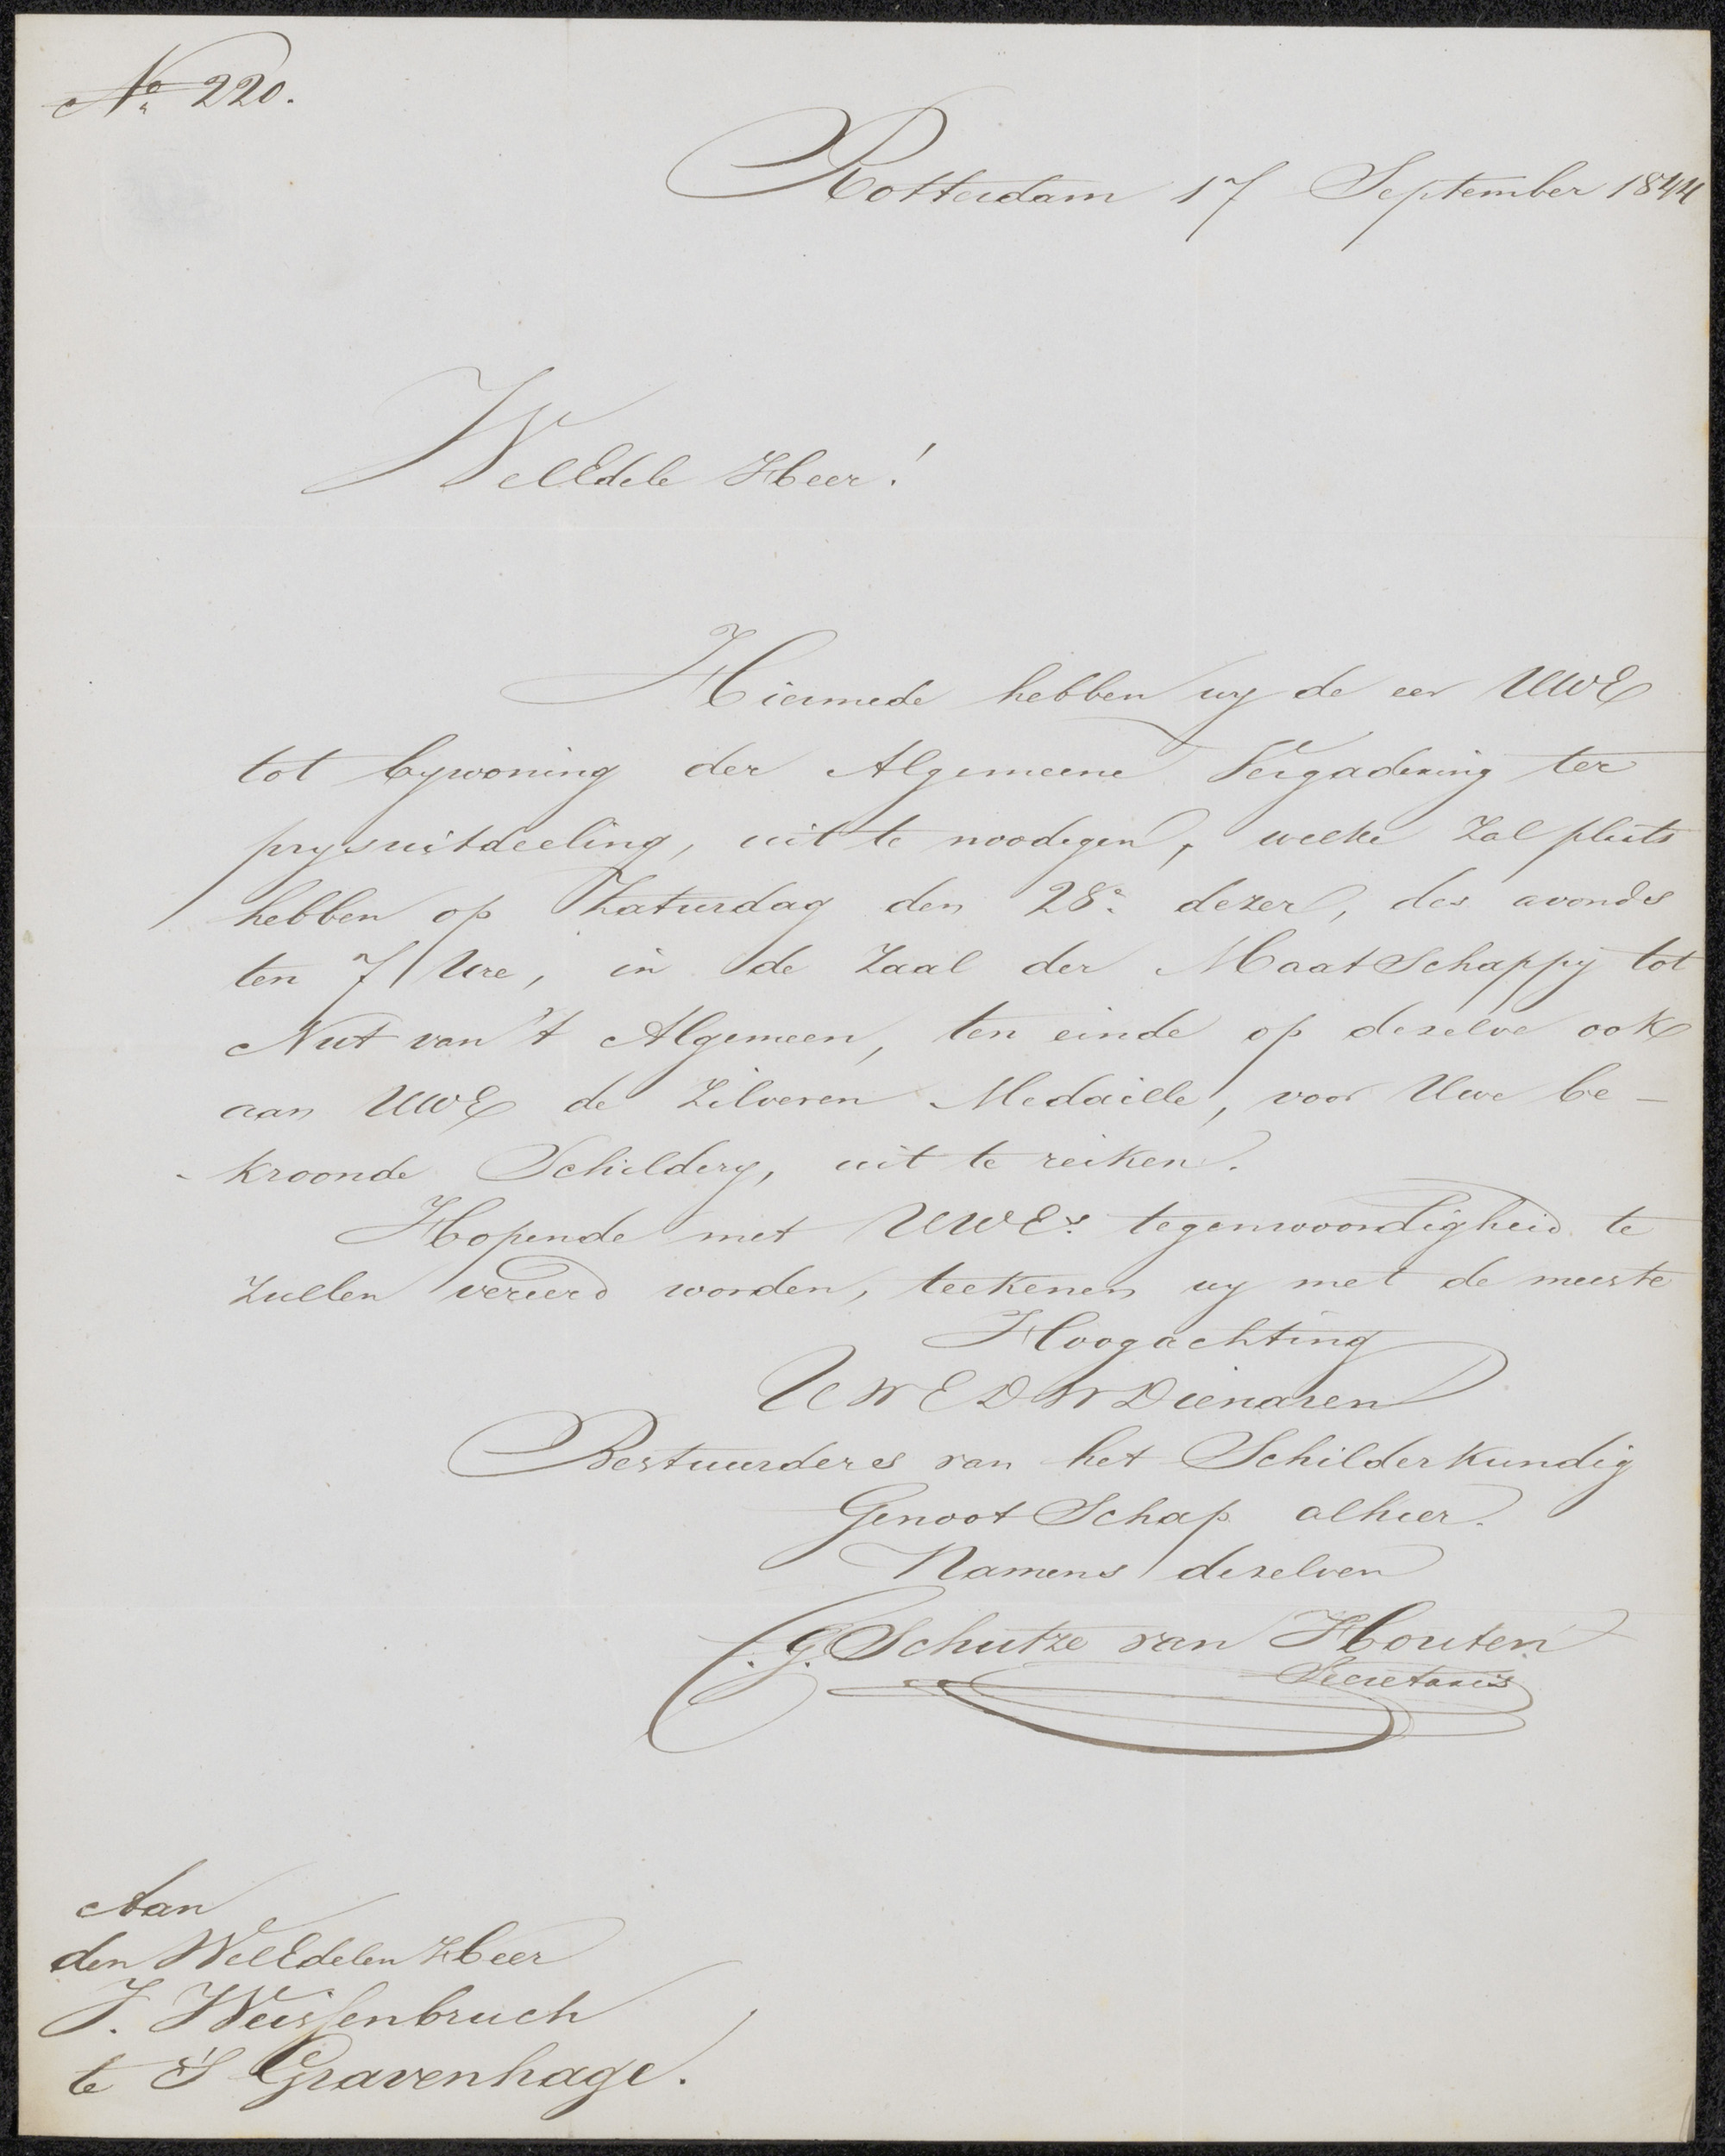 No. 220.
Rotterdam 17 September 1844
WelEdele Heer!
Hiermede hebben wy de eer UWE
tot bywoning der Algemeene Vergadering ter
prysuitdeeling, uit te noodigen, welke zal plaats
hebben op Zaturdag den 28e dezer, des avonds
ten 7 Ure, in de Zaal der MaatSchappy tot
Nut van 't Algemeen, ten einde op dezelve ook
aan UWE de Zilveren Medaille, voor Uwe be-
-kroonde Schildery, uit te reiken.
Hopende met UWEs tegenwoordigheid te
zullen vereerd worden, teekenen wy met de meeste
Hoogachting
UWEDWDienaren
Bestuurderes van het Schilderkundig
GenootSchap alhier.
Namens dezelven
G. Schutze van Houten
Secretaris
Aan
den WelEdelen Heer
J. Weissenbruch
te 'S Gravenhage.